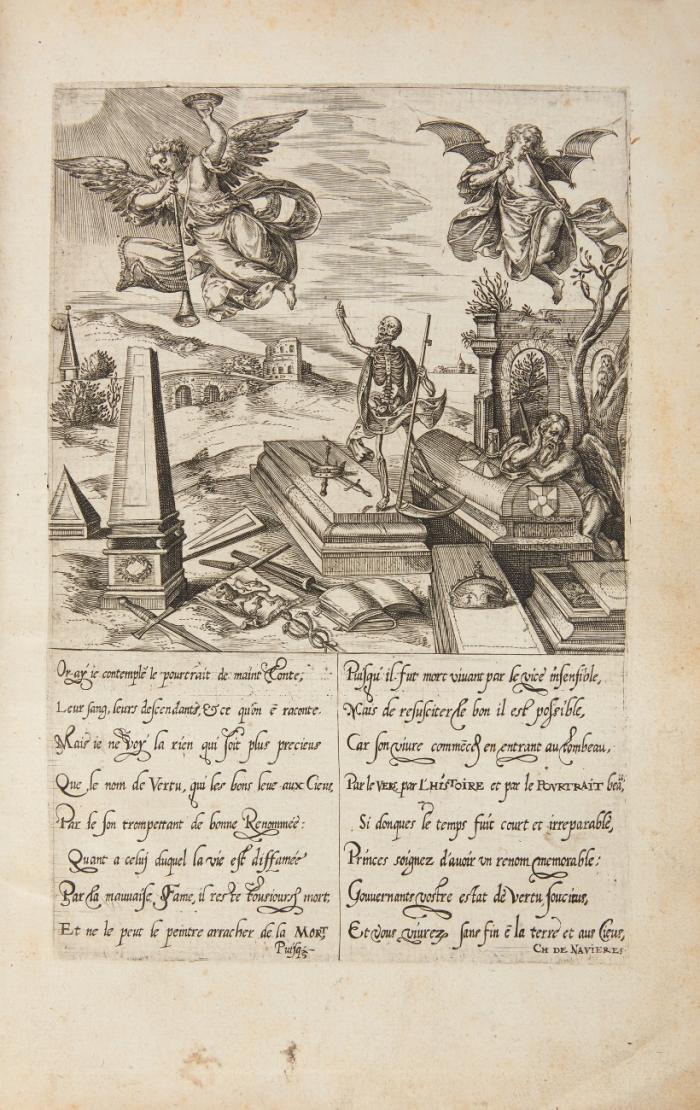 Or-ay ie contemplé le pourtrait de maint Conte,
Leur sang, leurs descendants, & ce qu'on ē raconte.
Mais ie ne voy la rien qui soit plus precieus
Que le nom de Vertu, qui les bons leue aux Cieus,
Par le son trompettant de bonne Renommée:
Quant a celuj duquel la vie est diffamée
Par la mauuaise Fame, il reste tousiours mort,
Et ne le peut le peintre arracher de la MORT,
Puisq̃
Puisqu'il fut mort viuant par le vice insensible,
Mais de resusciter le bon il est possible,
Car son viure commēce en entrant au tombeau,
Par le VERS, par L'HISTOIRE et par le POVRTRAIT beau,
Si donques le temps fuit court et irreparable,
Princes soignez d'auoir vn renom memorable:
Gouuernants vostre estat de vertu soucieus,
Et vous viurez sans fin ē la terre et aus Cieus,
CH DE NAVIERES.